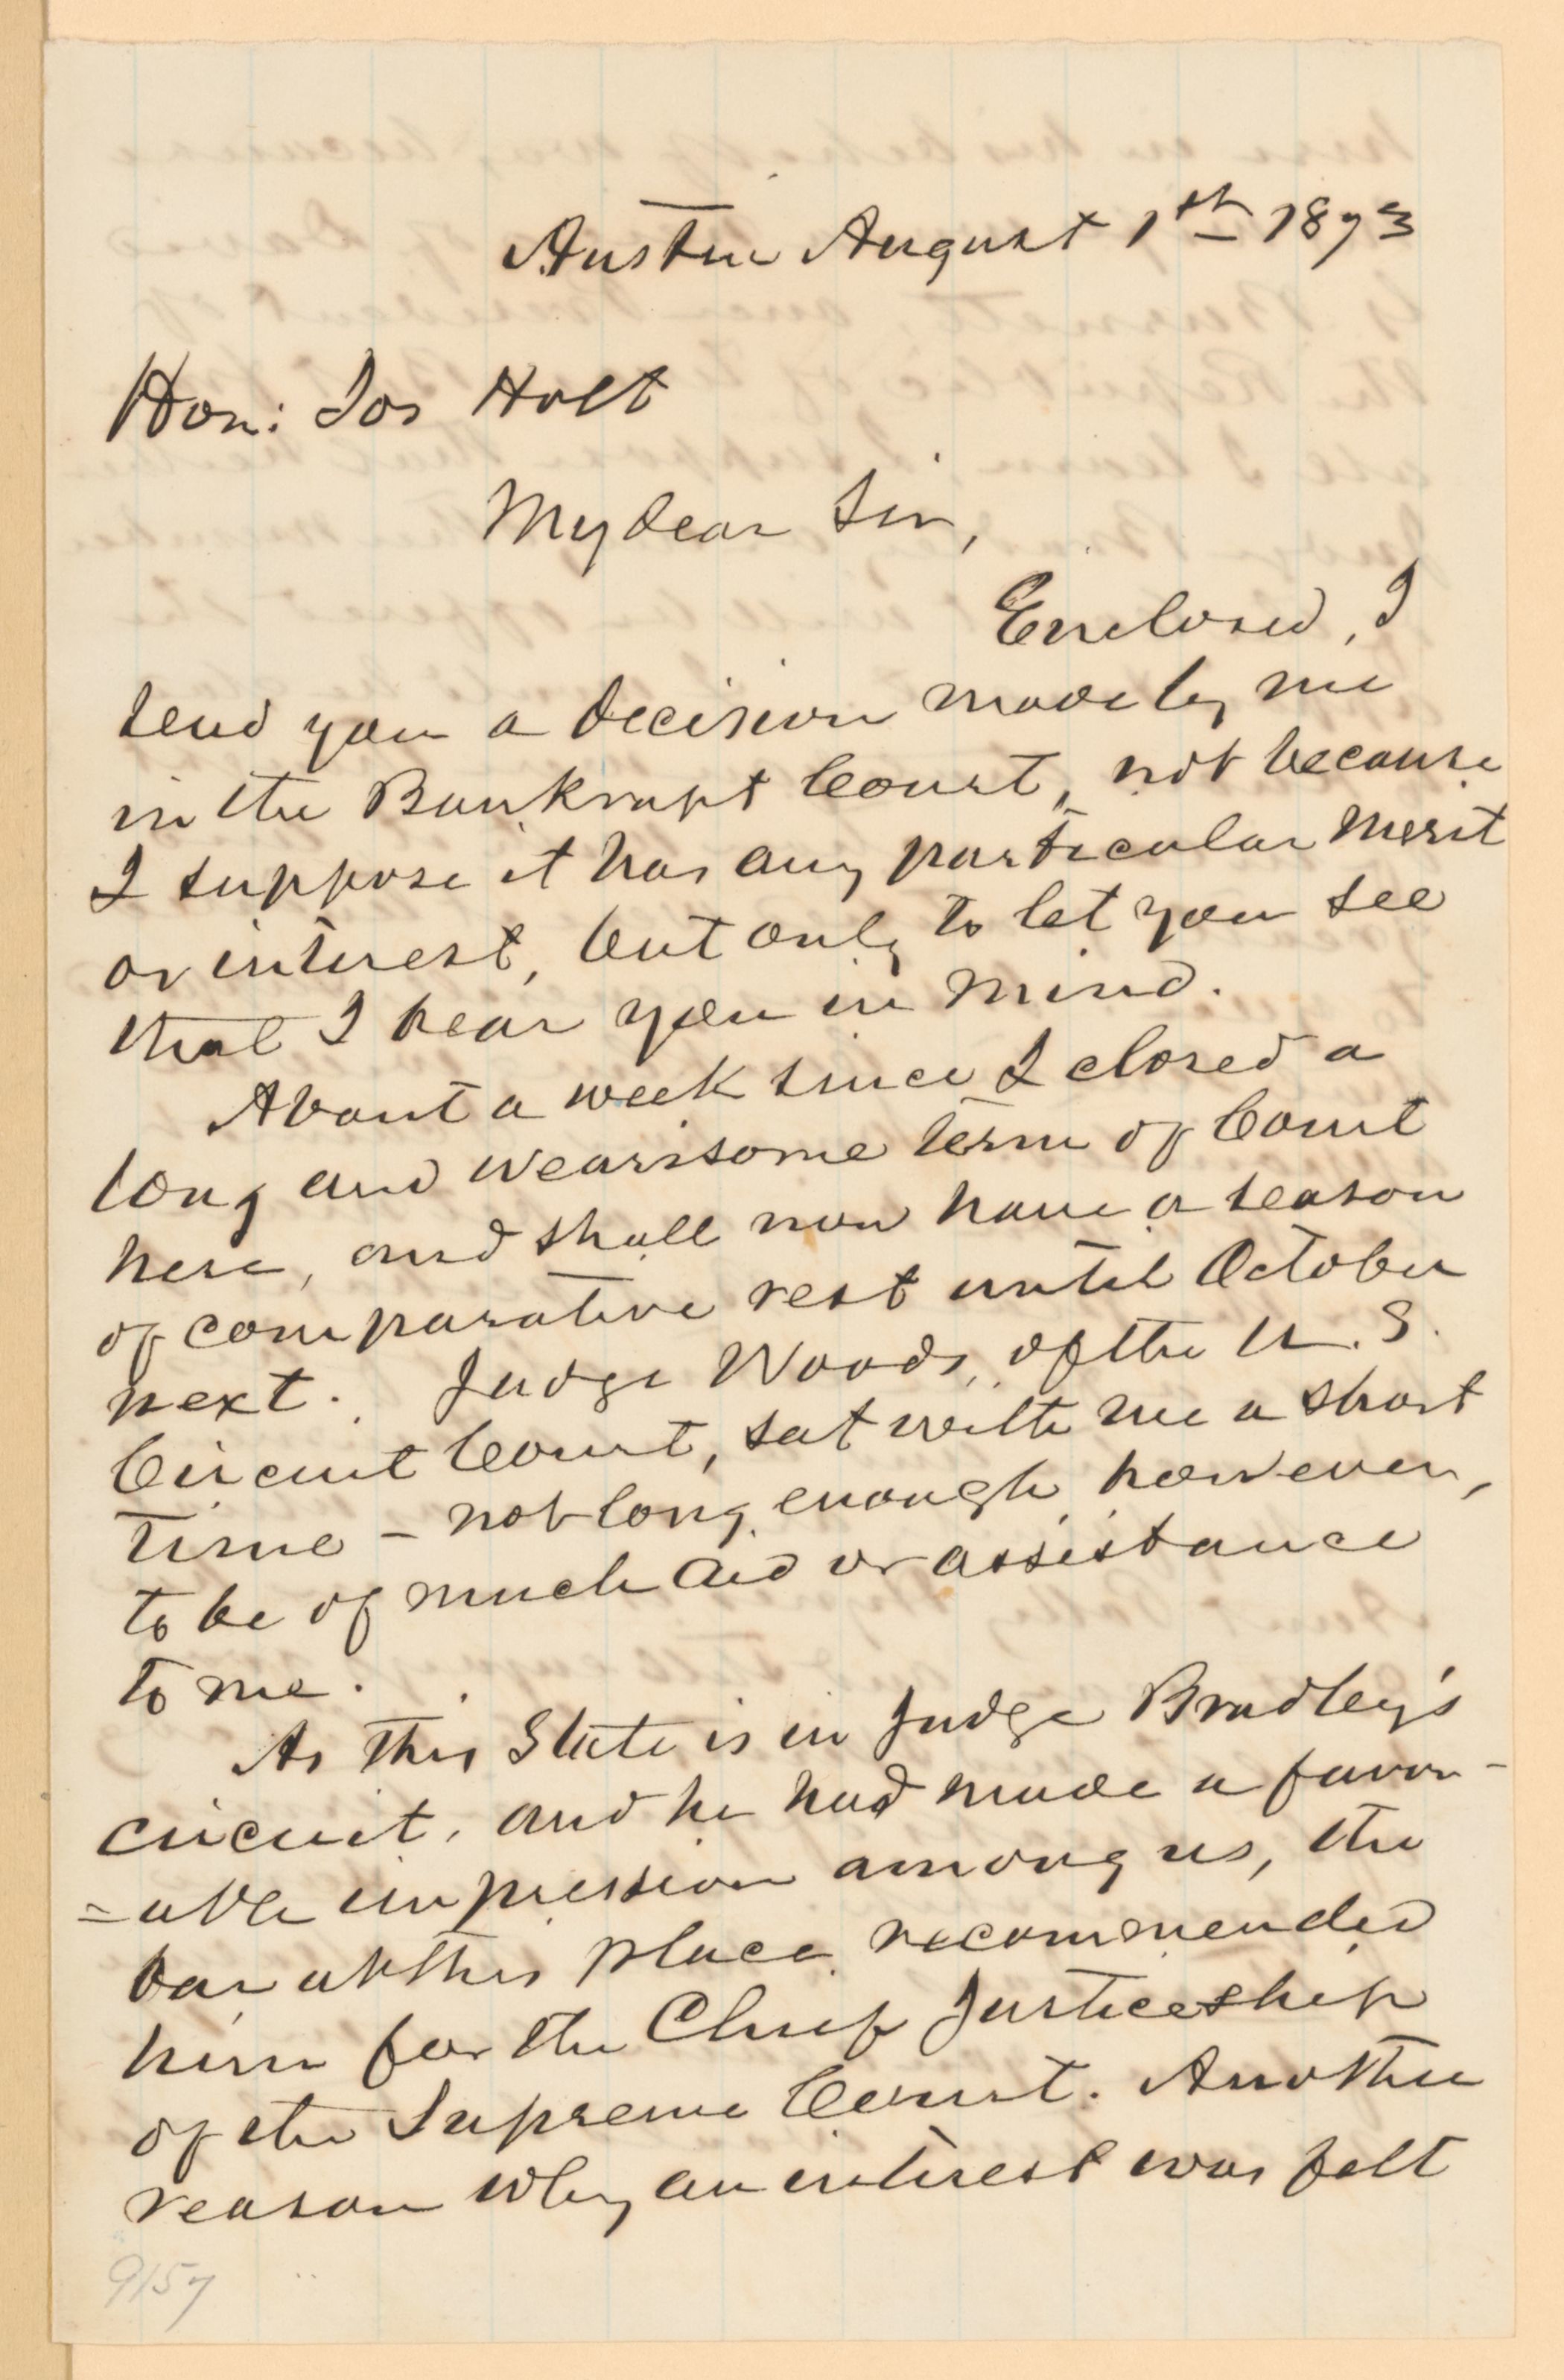 Austin August 1th 1873
Hon: Jos Holt
My dear Sir,
Enclosed, I
send you a decision made by me
in the Bankrupt Court, not because
I suppose it has any particular merit
or interest, but only to let you see
that I bear you in mind.
About a week since I closed a
long and wearisome term of Court
here, and shall now have a season
of comparative rest until October
next. Judge Woods, of the U.S.
Circuit Court, sat with me a short
time - not long enough, however,
to be of much aid or assistance
to me.
As this State is in Judge Bradley's
circuit, and he had made a favor-
=able impression among us, the
bar at this place recommended
him for the Chief Justiceship
of the Supreme Court. Another
reason why an interest was felt
9157